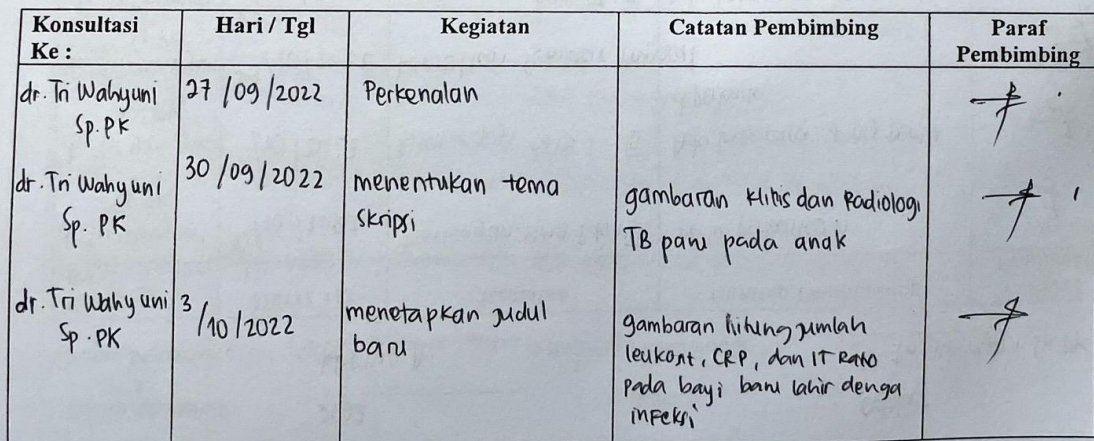 Konsultasi Ke : Hari / Tgl Kegiatan Catatan Pembimbing Paraf Pembimbing
dr. Tri Wahyuni 27 /09 /2022 Perkenalan
Sp. PK
dr. Tri Wahyuni 30 /09 /2022 menentukan tema gambaran klinis dan Radiologi
Sp. PK skripsi TB paru pada anak
dr. Tri Wahyuni 3 /10 /2022 menetapkan judul gambaran hitung jumlah
Sp. PK baru leukosit, CRP, dan IT Ratio
pada bayi baru lahir denga
infeksi